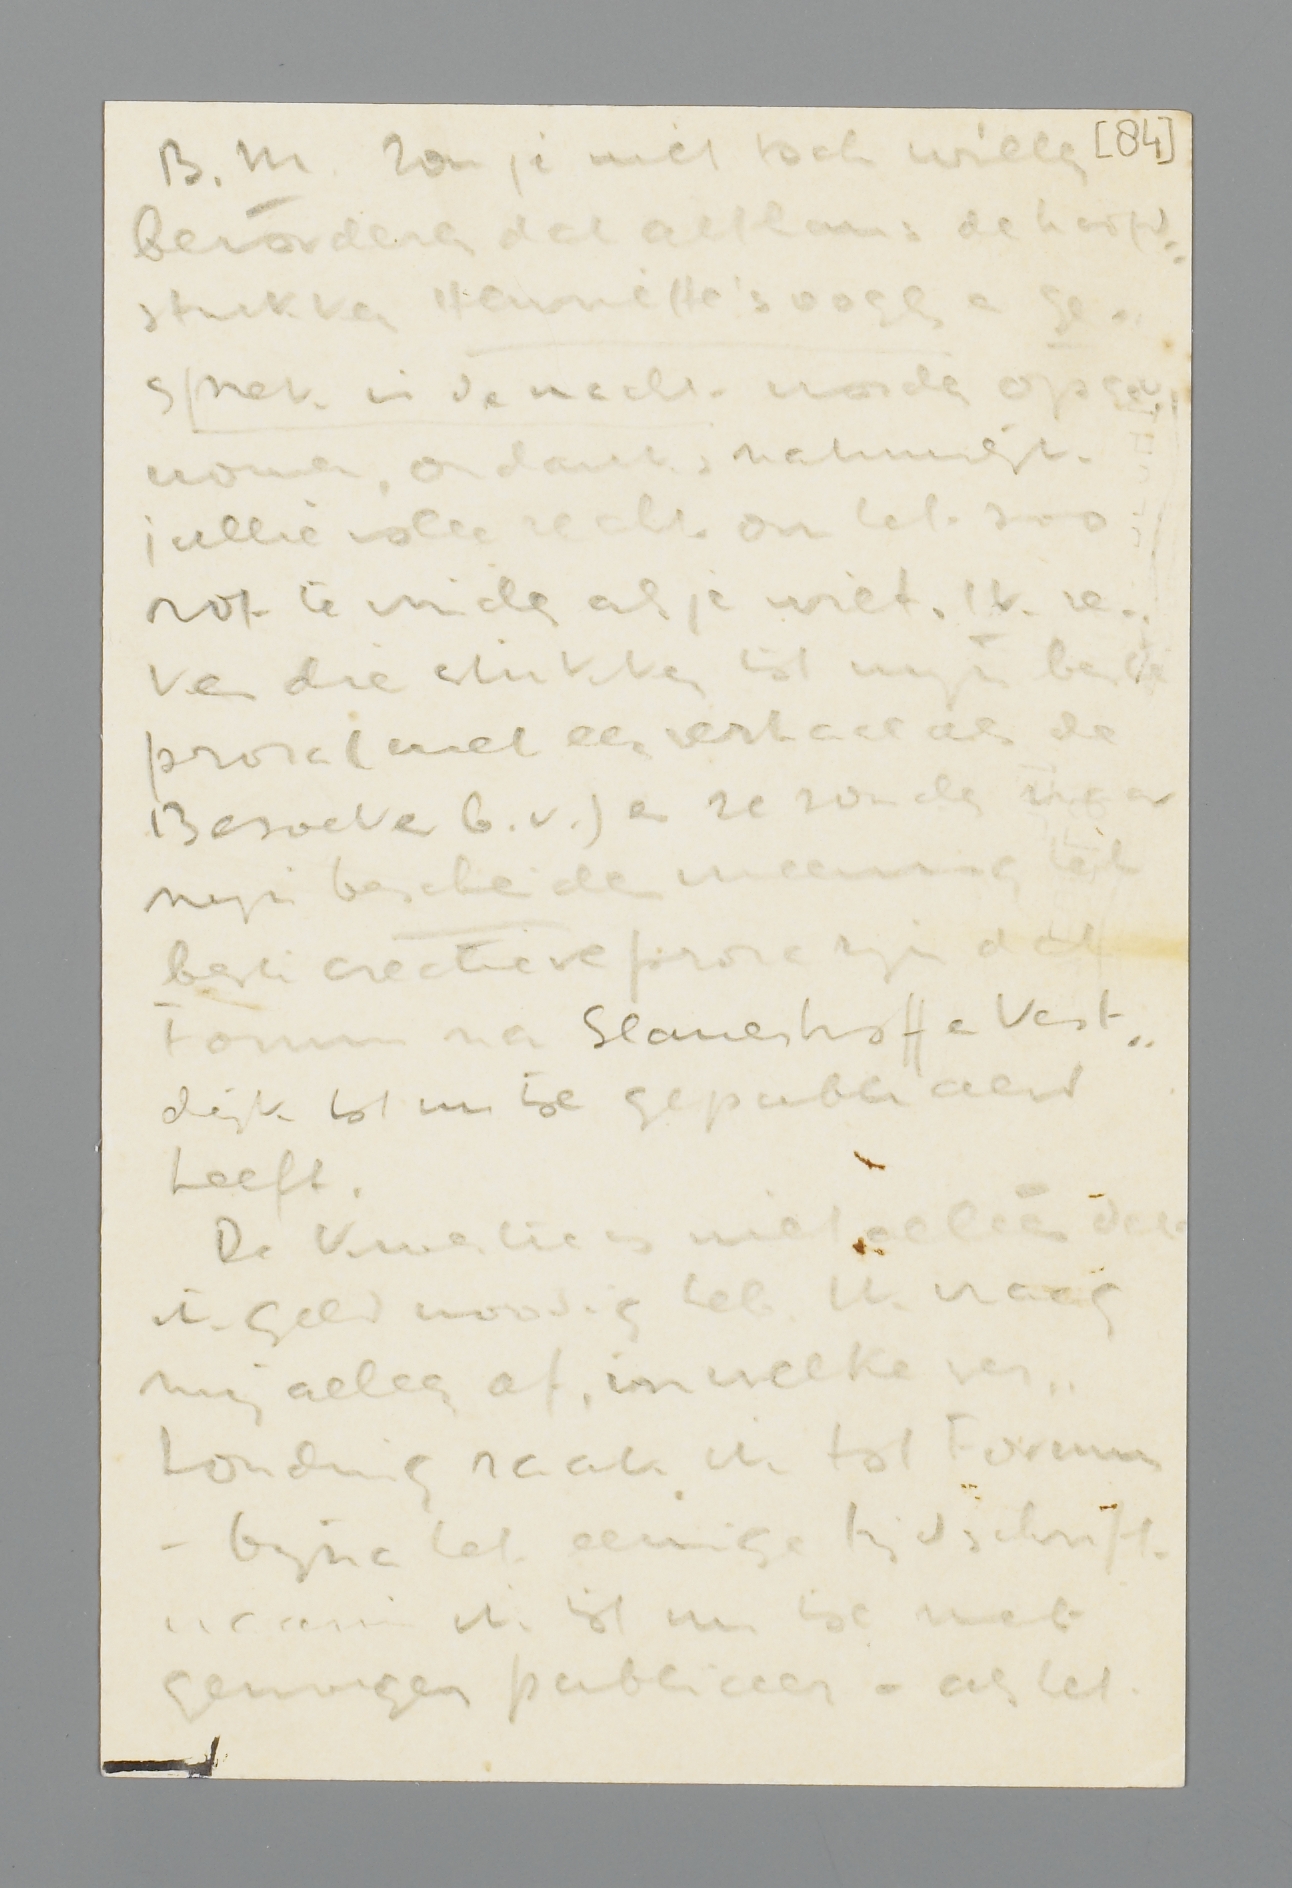 [84]
B.M. Zou je niet toch willen
bevorderen dat althans de hoofd-
stukken Henriëtte's oogen en Ge-
sprek in de nacht worden opge-
nomen, ondanks natuurlijk
jullie volle recht om het zoo
rot te vinden als je wilt. Ik re-
ken die stukken tot mijn beste
proza (met een verhaal als de
Bezoeker b.v.) en ze zouden naar
mijn bescheiden meening het
beste creatieve proza zijn dat
Forum na Slauerhoff en Vest-
dijk tot nu toe gepubliceerd
heeft.
De kwestie is niet alleen dat
ik geld noodig heb. Ik vraag
mij alleen af, in welke ver-
houding raak ik tot Forum
- bijna het eenige tijdschrift
waarin ik tot nu toe met
genoegen publiceer - als het